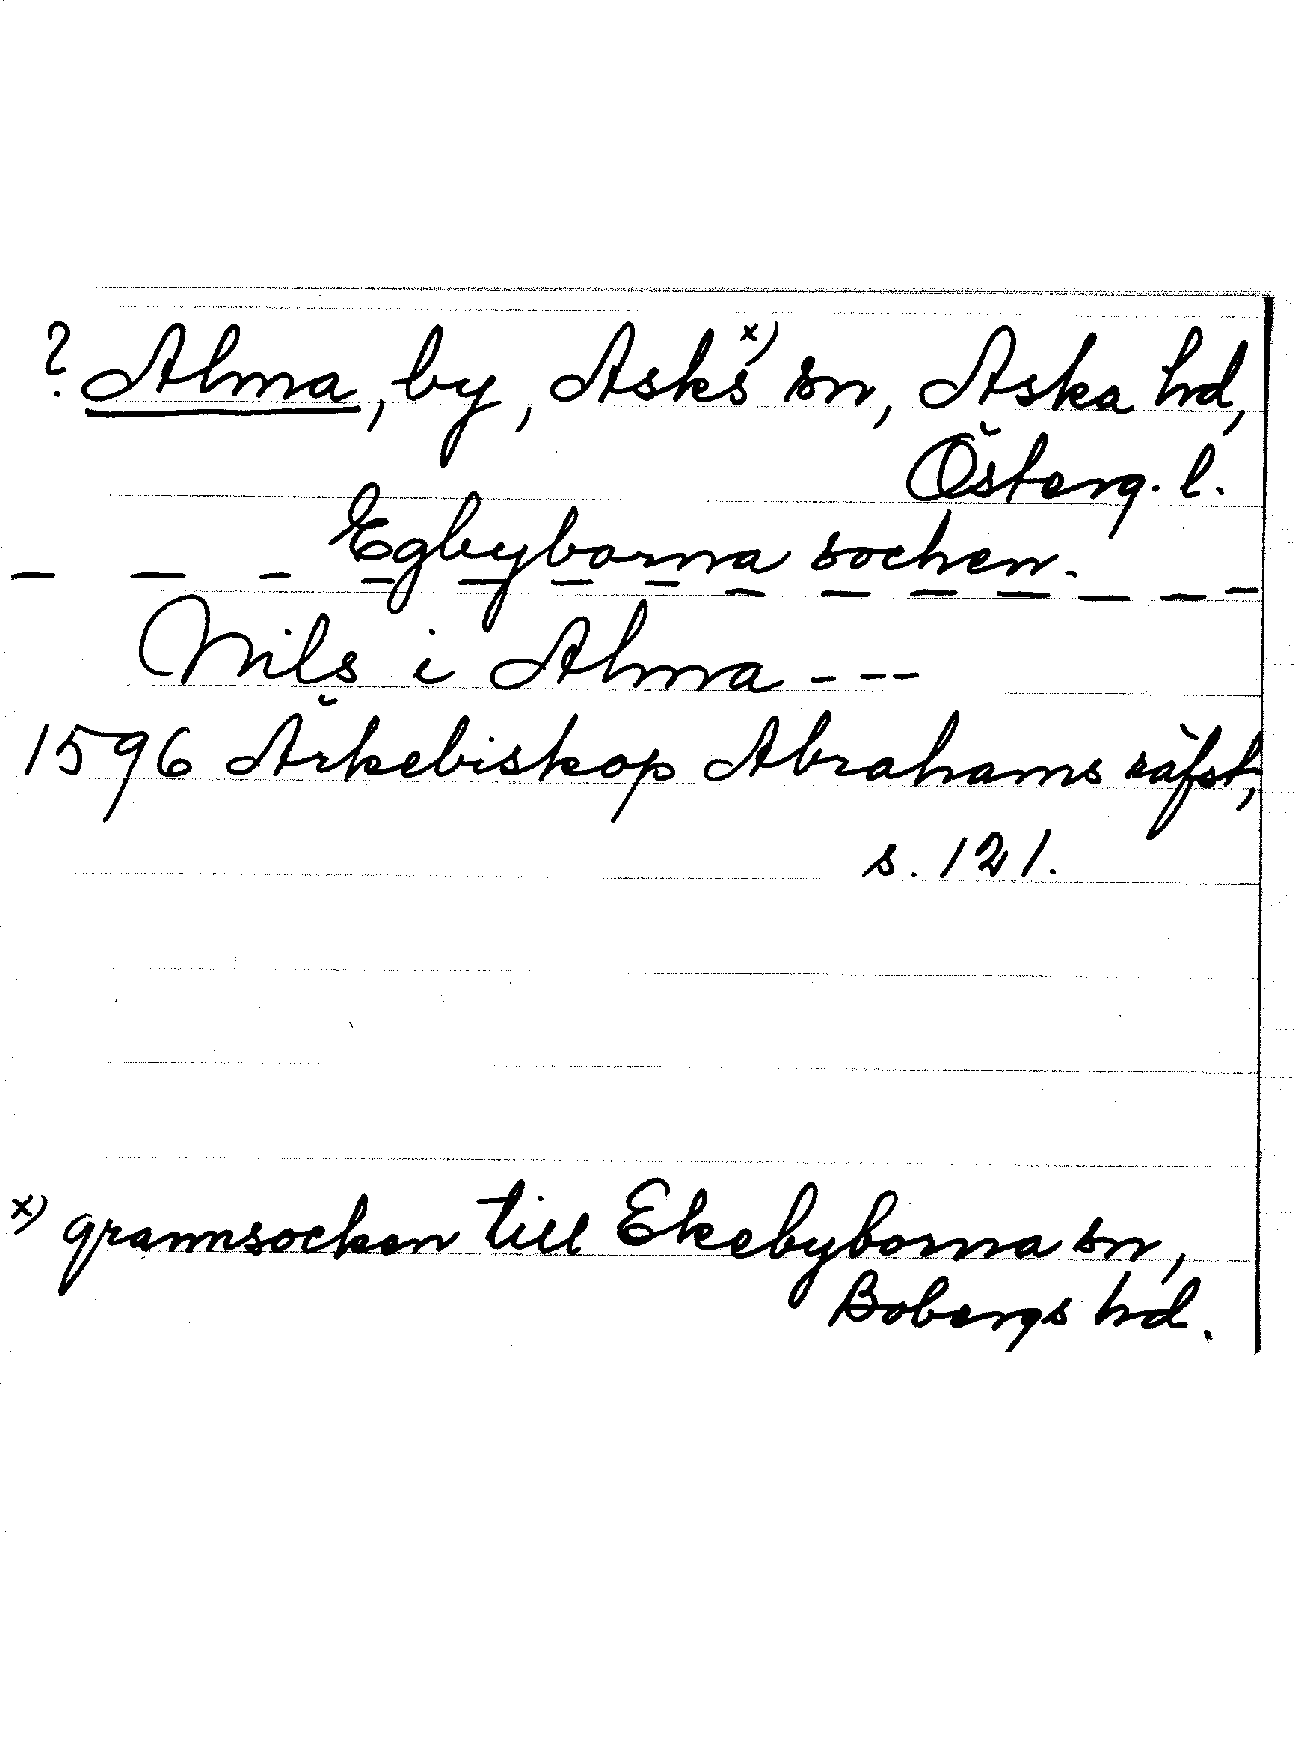 ? Alma, by, Asks x) sn, Aska hd,
Österg. l.
Egbyborna sochen.
Nils i Alma - - -
1596 Ärkebiskop Abrahams räfst,
s. 121.
x) grannsocken till Ekebyborna sn,
Bobergs hd.